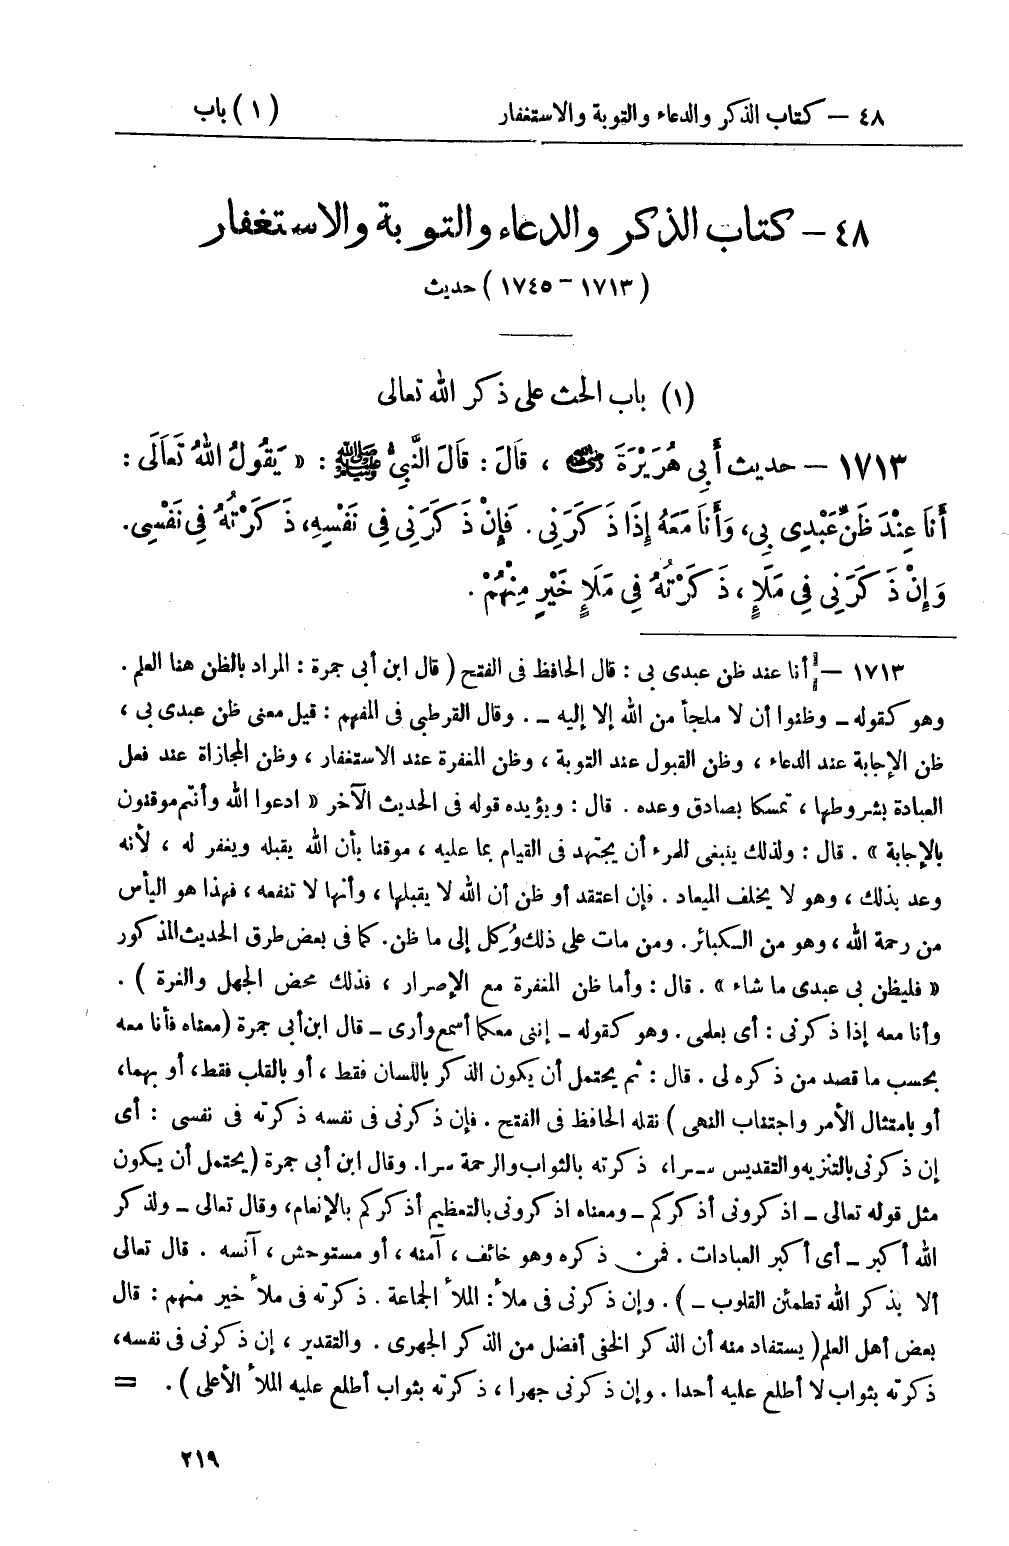 ٤٨ — كتاب الذكر والدعاء والتوبة والاستغفار (١) باب
٤٨ – كتاب الذكر والدعاء والتوبة والاستغفار
(١٧١٣ – ١٧٤٥) حديث
(١) باب الحث على ذكر الله تعالى
١٧١٣ – حديث أَبِي هُرَيْرَةَ رضي الله عنه ، قَالَ : قَالَ النَّبِيُّ ﷺ : « يَقُولُ اللهُ تَعَالَى :
أَنَا عِنْدَ ظَنِّ عَبْدِى بِي، وَأَنَا مَعَهُ إِذَا ذَكَرَنِي . فَإِنْ ذَكَرَنِي فِي نَفْسِهِ، ذَكَرْتُهُ فِي نَفْسِى.
وَإِنْ ذَكَرَنِي فِي مَلَإٍ ، ذَكَرْتُهُ فِي مَلَإٍ خَيْرٍ مِنْهُمْ .
١٧١٣ – أنا عند ظن عبدى بى : قال الحافظ فى الفتح ( قال ابن أبى جمرة : المراد بالظن هنا العلم .
وهو كقوله ـ وظنوا أن لا ملجأ من الله إلا إليه ـ . وقال القرطبى فى المفهم : قيل معنى ظن عبدى بى ،
ظن الإجابة عند الدعاء ، وظن القبول عند التوبة ، وظن المغفرة عند الاستغفار ، وظن المجازاة عند فعل
العبادة بشروطها ، تمسكا بصادق وعده . قال : ويؤيده قوله فى الحديث الآخر « ادعوا الله وأنتم موقنون
بالإجابة » . قال : ولذلك ينبغى للمرء أن يجتهد فى القيام بما عليه ، موقنا بأن الله يقبله ويغفر له ، لأنه
وعد بذلك ، وهو لا يخلف الميعاد . فإن اعتقد أو ظن أن الله لا يقبلها ، وأنها لا تنفعه ، فهذا هو اليأس
من رحمة الله ، وهو من الكبائر. ومن مات على ذلك وُكِل إلى ما ظن. كما فى بعض طرق الحديث المذكور
« فليظن بى عبدى ما شاء » . قال : وأما ظن المغفرة مع الإصرار ، فذلك محض الجهل والغرة ) .
وأنا معه إذا ذكرنى : أى بعلمى . وهو كقوله ـ إننى معكما أسمع وأرى ـ قال ابن أبى جمرة (معناه فأنا معه
بحسب ما قصد من ذكره لى . قال : ثم يحتمل أن يكون الذكر باللسان فقط ، أو بالقلب فقط، أو بهما،
أو بامتثال الأمر واجتناب النهى ) نقله الحافظ فى الفتح . فإن ذكرنى فى نفسه ذكرته فى نفسى : أى
إن ذكرنى بالتنزيه والتقديس سرا، ذكرته بالثواب والرحمة سرا. وقال ابن أبى جمرة (يحتمل أن يكون
مثل قوله تعالى ـ اذكرونى أذكركم ـ ومعناه اذكرونى بالتعظيم أذكركم بالإنعام، وقال تعالى ـ ولذكر
الله أكبر ـ أى أكبر العبادات . فمن ذكره وهو خائف ، آمنه ، أو مستوحش ، آنسه . قال تعالى
ألا بذكر الله تطمئن القلوب ـ ) . وإن ذكرنى فى ملأ : الملأ الجماعة . ذكرته فى ملأ خير منهم : قال
بعض أهل العلم( يستفاد منه أن الذكر الخفى أفضل من الذكر الجهرى . والتقدير ، إن ذكرنى فى نفسه،
ذكرته بثواب لا أطلع عليه أحدا . وإن ذكرنى جهرا ، ذكرته بثواب أطلع عليه الملأ الأعلى ) . =
٢١٩